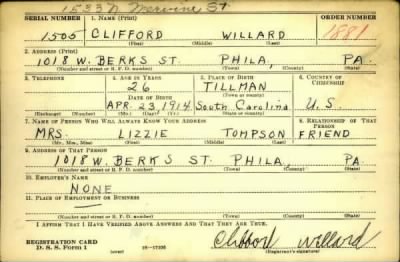 1533 N. Mervine St.
SERIAL NUMBER 1. NAME (Print) ORDER NUMBER
1505 CLIFFORD WILLARD 1881
(First) (Middle) (Last)
2. ADDRESS (Print)
1018 W. BERKS ST. PHILA, PA.
(Number and street or R. F. D. number) (Town) (County) (State)
3. TELEPHONE 4. AGE IN YEARS 5. PLACE OF BIRTH 6. COUNTRY OF CITIZENSHIP
26 TILLMAN
(Town or county)
DATE OF BIRTH
APR. 23, 1914 South Carolina U.S.
(Exchange) (Number) (Mo.) (Day) (Yr.) (State or country)
7. NAME OF PERSON WHO WILL ALWAYS KNOW YOUR ADDRESS 8. RELATIONSHIP OF THAT PERSON
MRS. LIZZIE TOMPSON FRIEND
(Mr., Mrs., Miss) (First) (Middle) (Last)
9. ADDRESS OF THAT PERSON
1018 W. BERKS ST. PHILA, PA.
(Number and street or R. F. D. number) (Town) (County) (State)
10. EMPLOYER'S NAME
NONE
11. PLACE OF EMPLOYMENT OR BUSINESS
(Number and street or R. F. D. number) (Town) (County) (State)
I AFFIRM THAT I HAVE VERIFIED ABOVE ANSWERS AND THAT THEY ARE TRUE.
REGISTRATION CARD
D. S. S. Form 1 (over) Clifford Willard
(Registrant's signature)